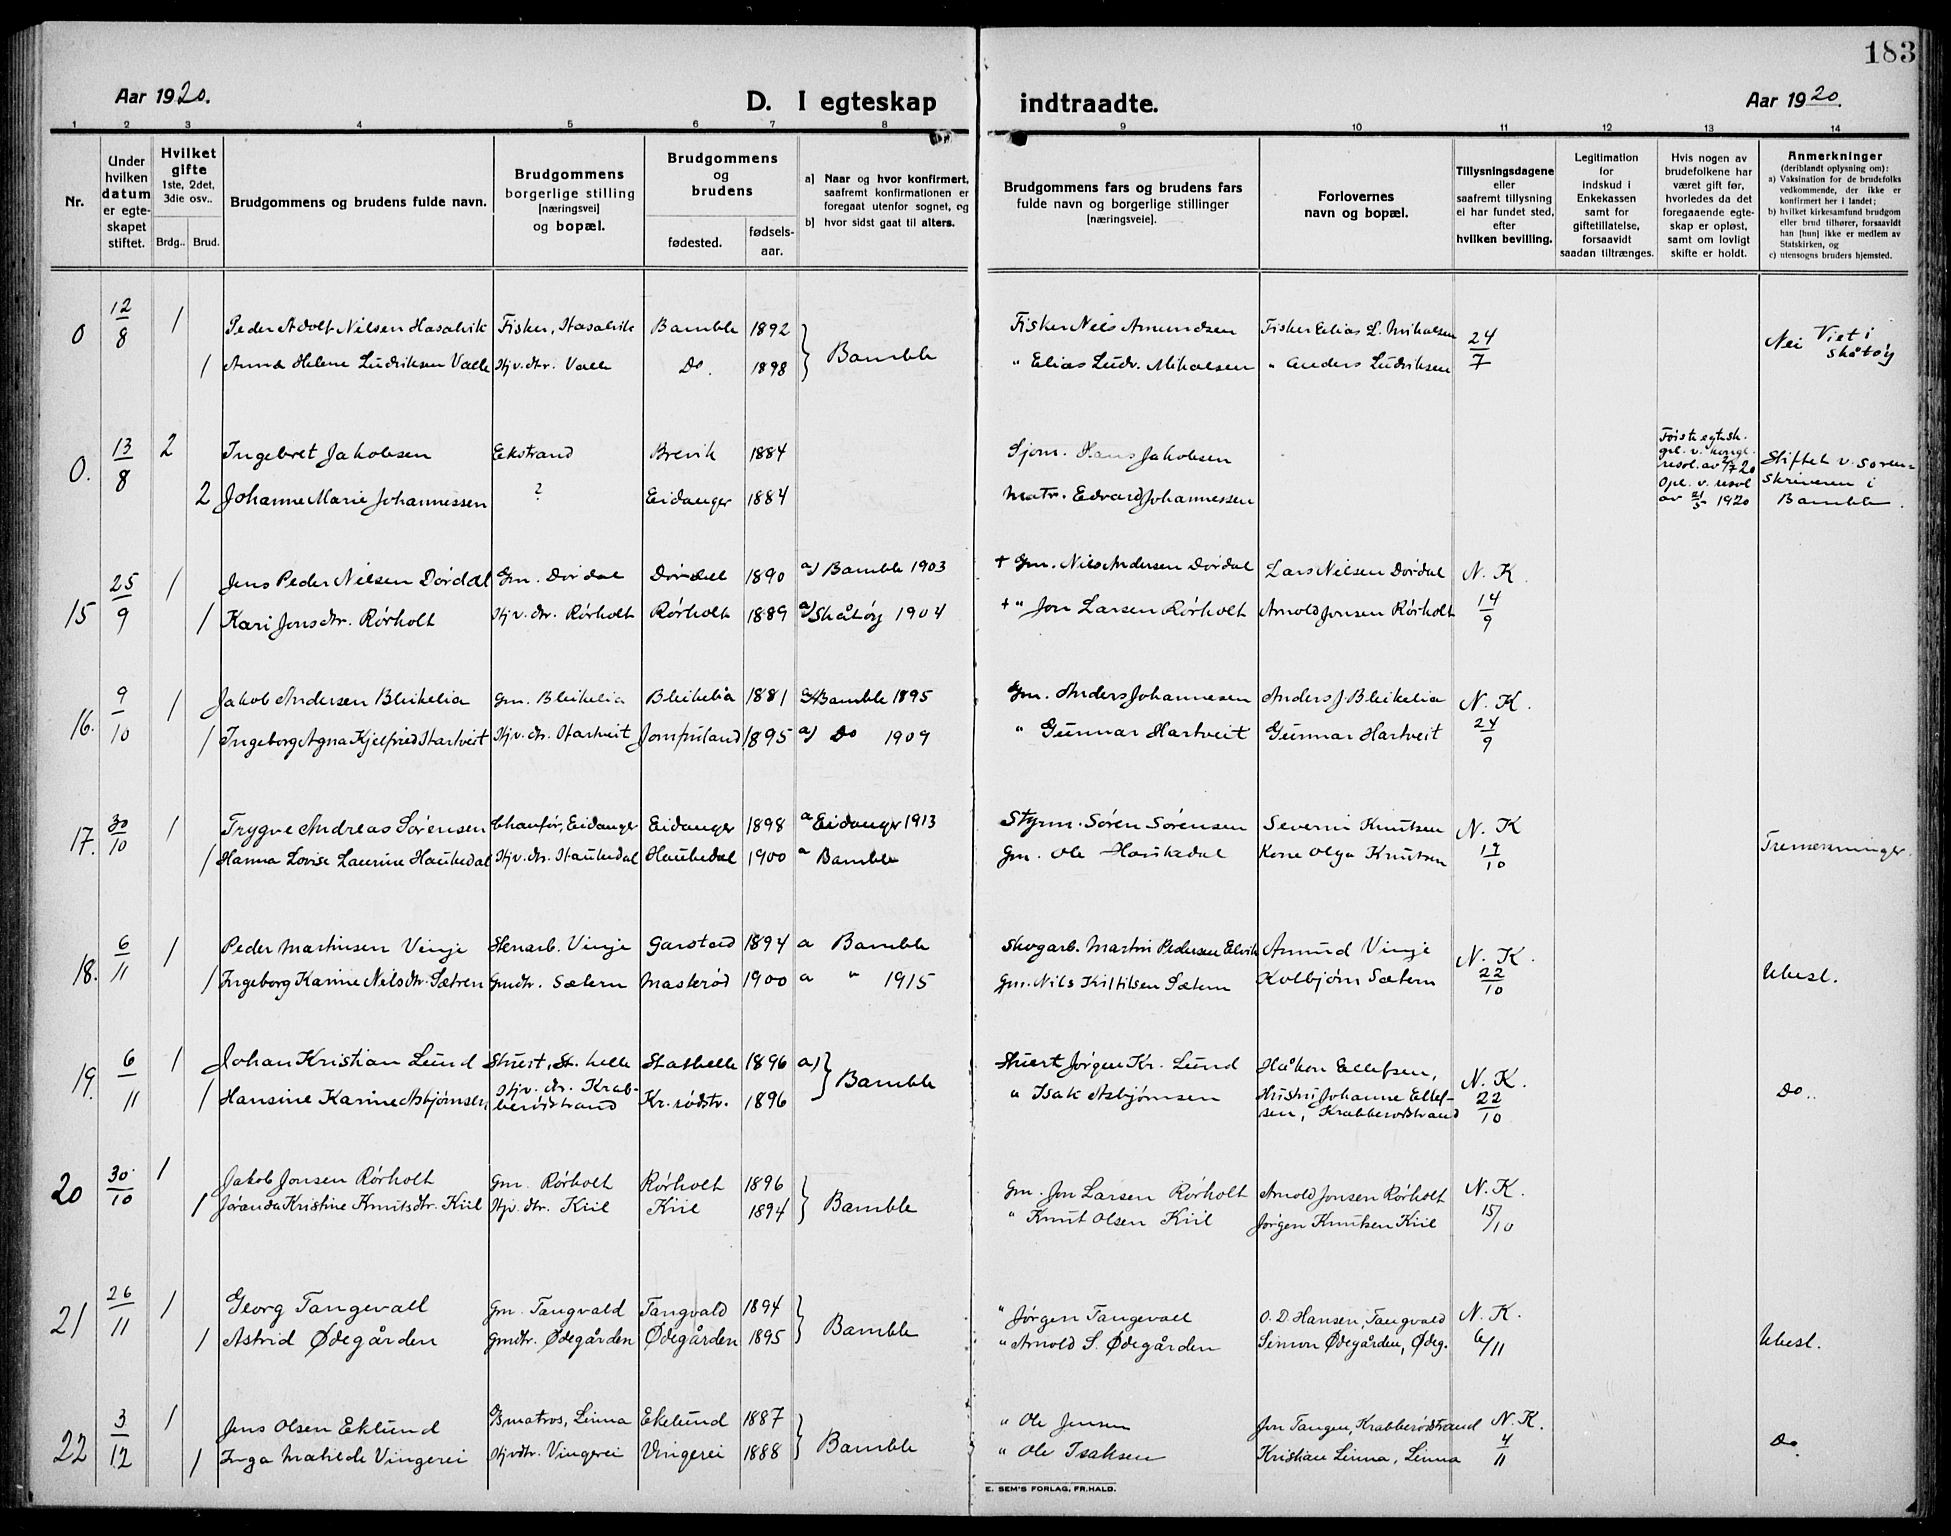 183
Aar 1920.
D. I egteskap indtraadte.
Aar 1920.
1 2 3 4 5 6 7 8 9 10 11 12 13 14
Nr.
Under hvilken datum er egteskapet stiftet.
Hvilket gifte 1ste, 2det, 3die osv.. Brdg.. Brud.
Brudgommens og brudens fulde navn.
Brudgommens borgerlige stilling [næringsvei] og bopæl.
Brudgommens og brudens fødested. fødselsaar.
a) Naar og hvor konfirmert, saafremt konfirmationen er foregaat utenfor sognet, og
b) hvor sidst gaat til alters.
Brudgommens fars og brudens fars fulde navn og borgerlige stillinger [næringsveie].
Forlovernes navn og bopæl.
Tillysningsdagene eller saafremt tillysning ei har fundet sted, efter hvilken bevilling.
Legitimation for indskud i Enkekassen samt for giftetillatelse, forsaavidt saadan tiltrænges.
Hvis nogen av brudefolkene har været gift før, hvorledes da det foregaaende egteskap er opløst, samt om lovligt skifte er holdt.
Anmerkninger (deriblandt oplysning om):
a) Vaksination for de brudefolks vedkommende, der ikke er konfirmert her i landet;
b) hvilket kirkesamfund brudgom eller brud tilhører, forsaavidt han [hun] ikke er medlem av Statskirken, og
c) utensogns bruders hjemsted.
0 12/8 1 Peder Adolf Nilsen Hasalvik Fisker, Hasalvik Bamble 1892 } Bamble Fisker Nils Amundsen Fisker Elias L. Mikalsen 24/7 Nei Viet i Skåtøy
1 Anna Helene Ludviksen Valle Hjv. dtr. Valle Do. 1898 " Elias Ludv. Mikalsen " Anders Ludviksen
0. 13/8 2 Ingebret Jakobsen Ekstrand Brevik 1884 Sjøm. Hans Jakobsen
2 Johanne Marie Johannessen ? Eidanger 1884 Matr. Edvard Johannessen
av 21/5 1920 Stiftet v. Sorenskriveren i Bamble.
15 25/9 1 Jens Peder Nilsen Dørdal Gm. Dørdal Dørdal 1890 a) Bamble 1903 + Gm. Nils Andersen Dørdal Lars Nilsen Dørdal N. K.
1 Kari Jonsdtr. Rørholt Hjv. dtr. Rørholt Rørholt 1889 a) Skåtøy 1904 + " Jon Larsen Rørholt Arnold Jonsen Rørholt 14/9
16. 9/10 1 Jakob Andersen Bleikelia Gm. Bleikelia Bleikelia 1881 a) Bamble 1895 Gm. Anders Johannesen Anders J Bleikelia N. K.
1 Ingeborg Agna Kjelfrid Hartveit Hjv. dtr. Hartveit Jomfruland 1895 a) Do 1909 " Gunnar Hartveit Gunnar Hartveit 24/9
17. 30/10 1 Trygve Andreas Sørensen Chauffør, Eidanger Eidanger 1898 a Eidanger 1913 Styrm. Søren Sørensen Severin Knutsen N. K
1 Hanna Lovise Laurine Haukedal Hjv. dtr. Haukedal Haukedal 1900 a Bamble Gm. Ole Haukedal Kone Olga Knutsen 19/10 Tremenninger.
18. 6/11 1 Peder Martinsen Vinje Stenarb. Vinje Garstad 1894 a Bamble Skogarb. Martin Pedersen Elvik Amund Vinje N. K.
1 Ingeborg Karine Nilsdtr. Sætren Gmdtr. Sætern Masterød 1900 a " 1915 Gm. Nils Kittilsen Sætern Kolbjørn Sætern 22/10 Ubesl.
19. 6/11 1 Johan Kristian Lund Skuest, St. helle Stathelle 1896 a) } Bamble Skuest Jørgen Kr. Lund Håkon Ellefsen, N. K.
1 Hansine Karine Asbjørnsen Hjv. dtr. Krabberødstrand Kr. rødstr. 1896 " Isak Asbjørnsen Hustru Johanne Ellefsen, Krabberødstrand 22/10 Do.
20 30/10 1 Jakob Jonsen Rørholt Gm. Rørholt Rørholt 1896 } Bamble Gm. Jon Larsen Rørholt Arnold Jonsen Rørholt N. K.
1 Jøranda Kristine Knutsdtr. Kiil Hjv. dtr. Kiil Kiil 1894 " Knut Olsen Kiil Jørgen Knutsen Kiil 15/10
21 26/11 1 Georg Tangevall Gm. Tangvald Tangvald 1894 } Bamble " Jørgen Tangevall O. D. Hansen, Tangvald N. K.
1 Astrid Ødegården Gmdtr. Ødegården Ødegården 1895 " Arnold S. Ødegården Simon Ødegården, Ødeg. 6/11 Ubesl.
22 3/12 1 Jens Olsen Eklund matros, Linna Ekelund 1887 } Bamble " Ole Jensen Jon Tangen, Krabberødstrand N. K.
1 Inga Matilde Vingerei Hjvdtr. Vingerei Vingerei 1888 " Ole Isaksen Kristian Linna, Linna 4/11 Do.
E. SEM'S FORLAG, FR.HALD.